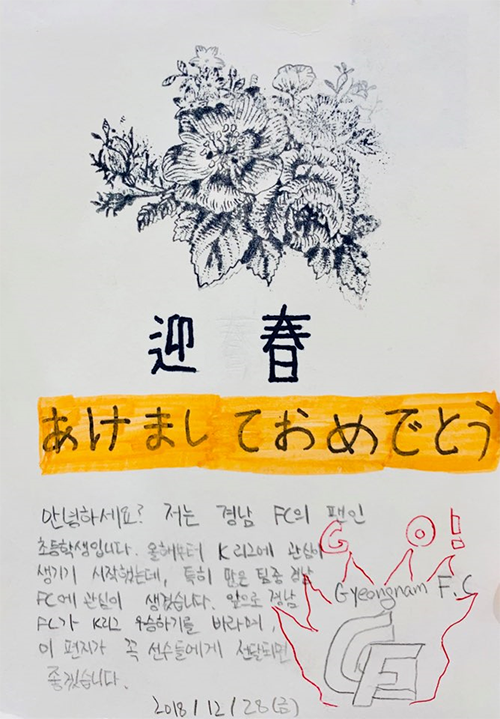 迎 春
あけましておめでとう
안녕하세요? 저는 경남 FC의 팬인
초등학생입니다. 올해부터 K리그에 관심이
생기기 시작했는데, 특히 많은 팀중 경남
FC에 관심이 생겼습니다. 앞으로 경남
FC가 K리그 우승하기를 바라며,
이 편지가 꼭 선수들에게 전달되면
좋겠습니다.
2018/12/28(금)
G O!
Gyeongnam F.C
GF